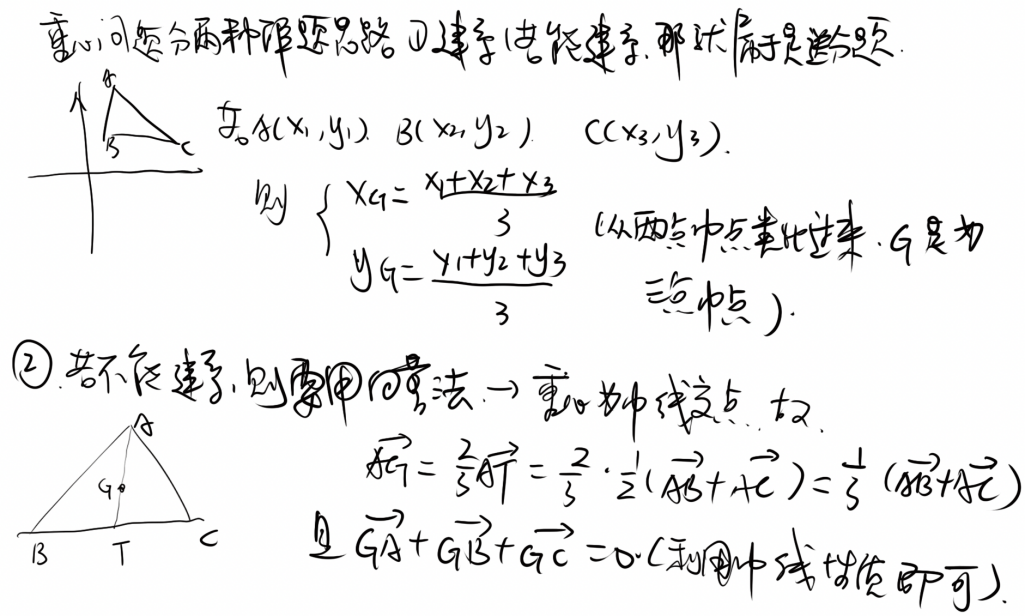 重心问题分两种解题思路 ①建系(若能建系,那就属于是送分题.
A
B
C
若A(x1,y1). B(x2,y2). C(x3,y3).
则 { xG= x1+x2+x3 / 3
yG= y1+y2+y3 / 3
(从两点中点类比过来.G是为
三点中点).
②.若不能建系,则要用向量法.→重心为中线交点.故.
A
G
B T C
AG→ = 2/3 AT→ = 2/3 · 1/2 (AB→ + AC→) = 1/3 (AB→+AC→)
且 GA→ + GB→ + GC→ = 0.(利用中线性质即可).